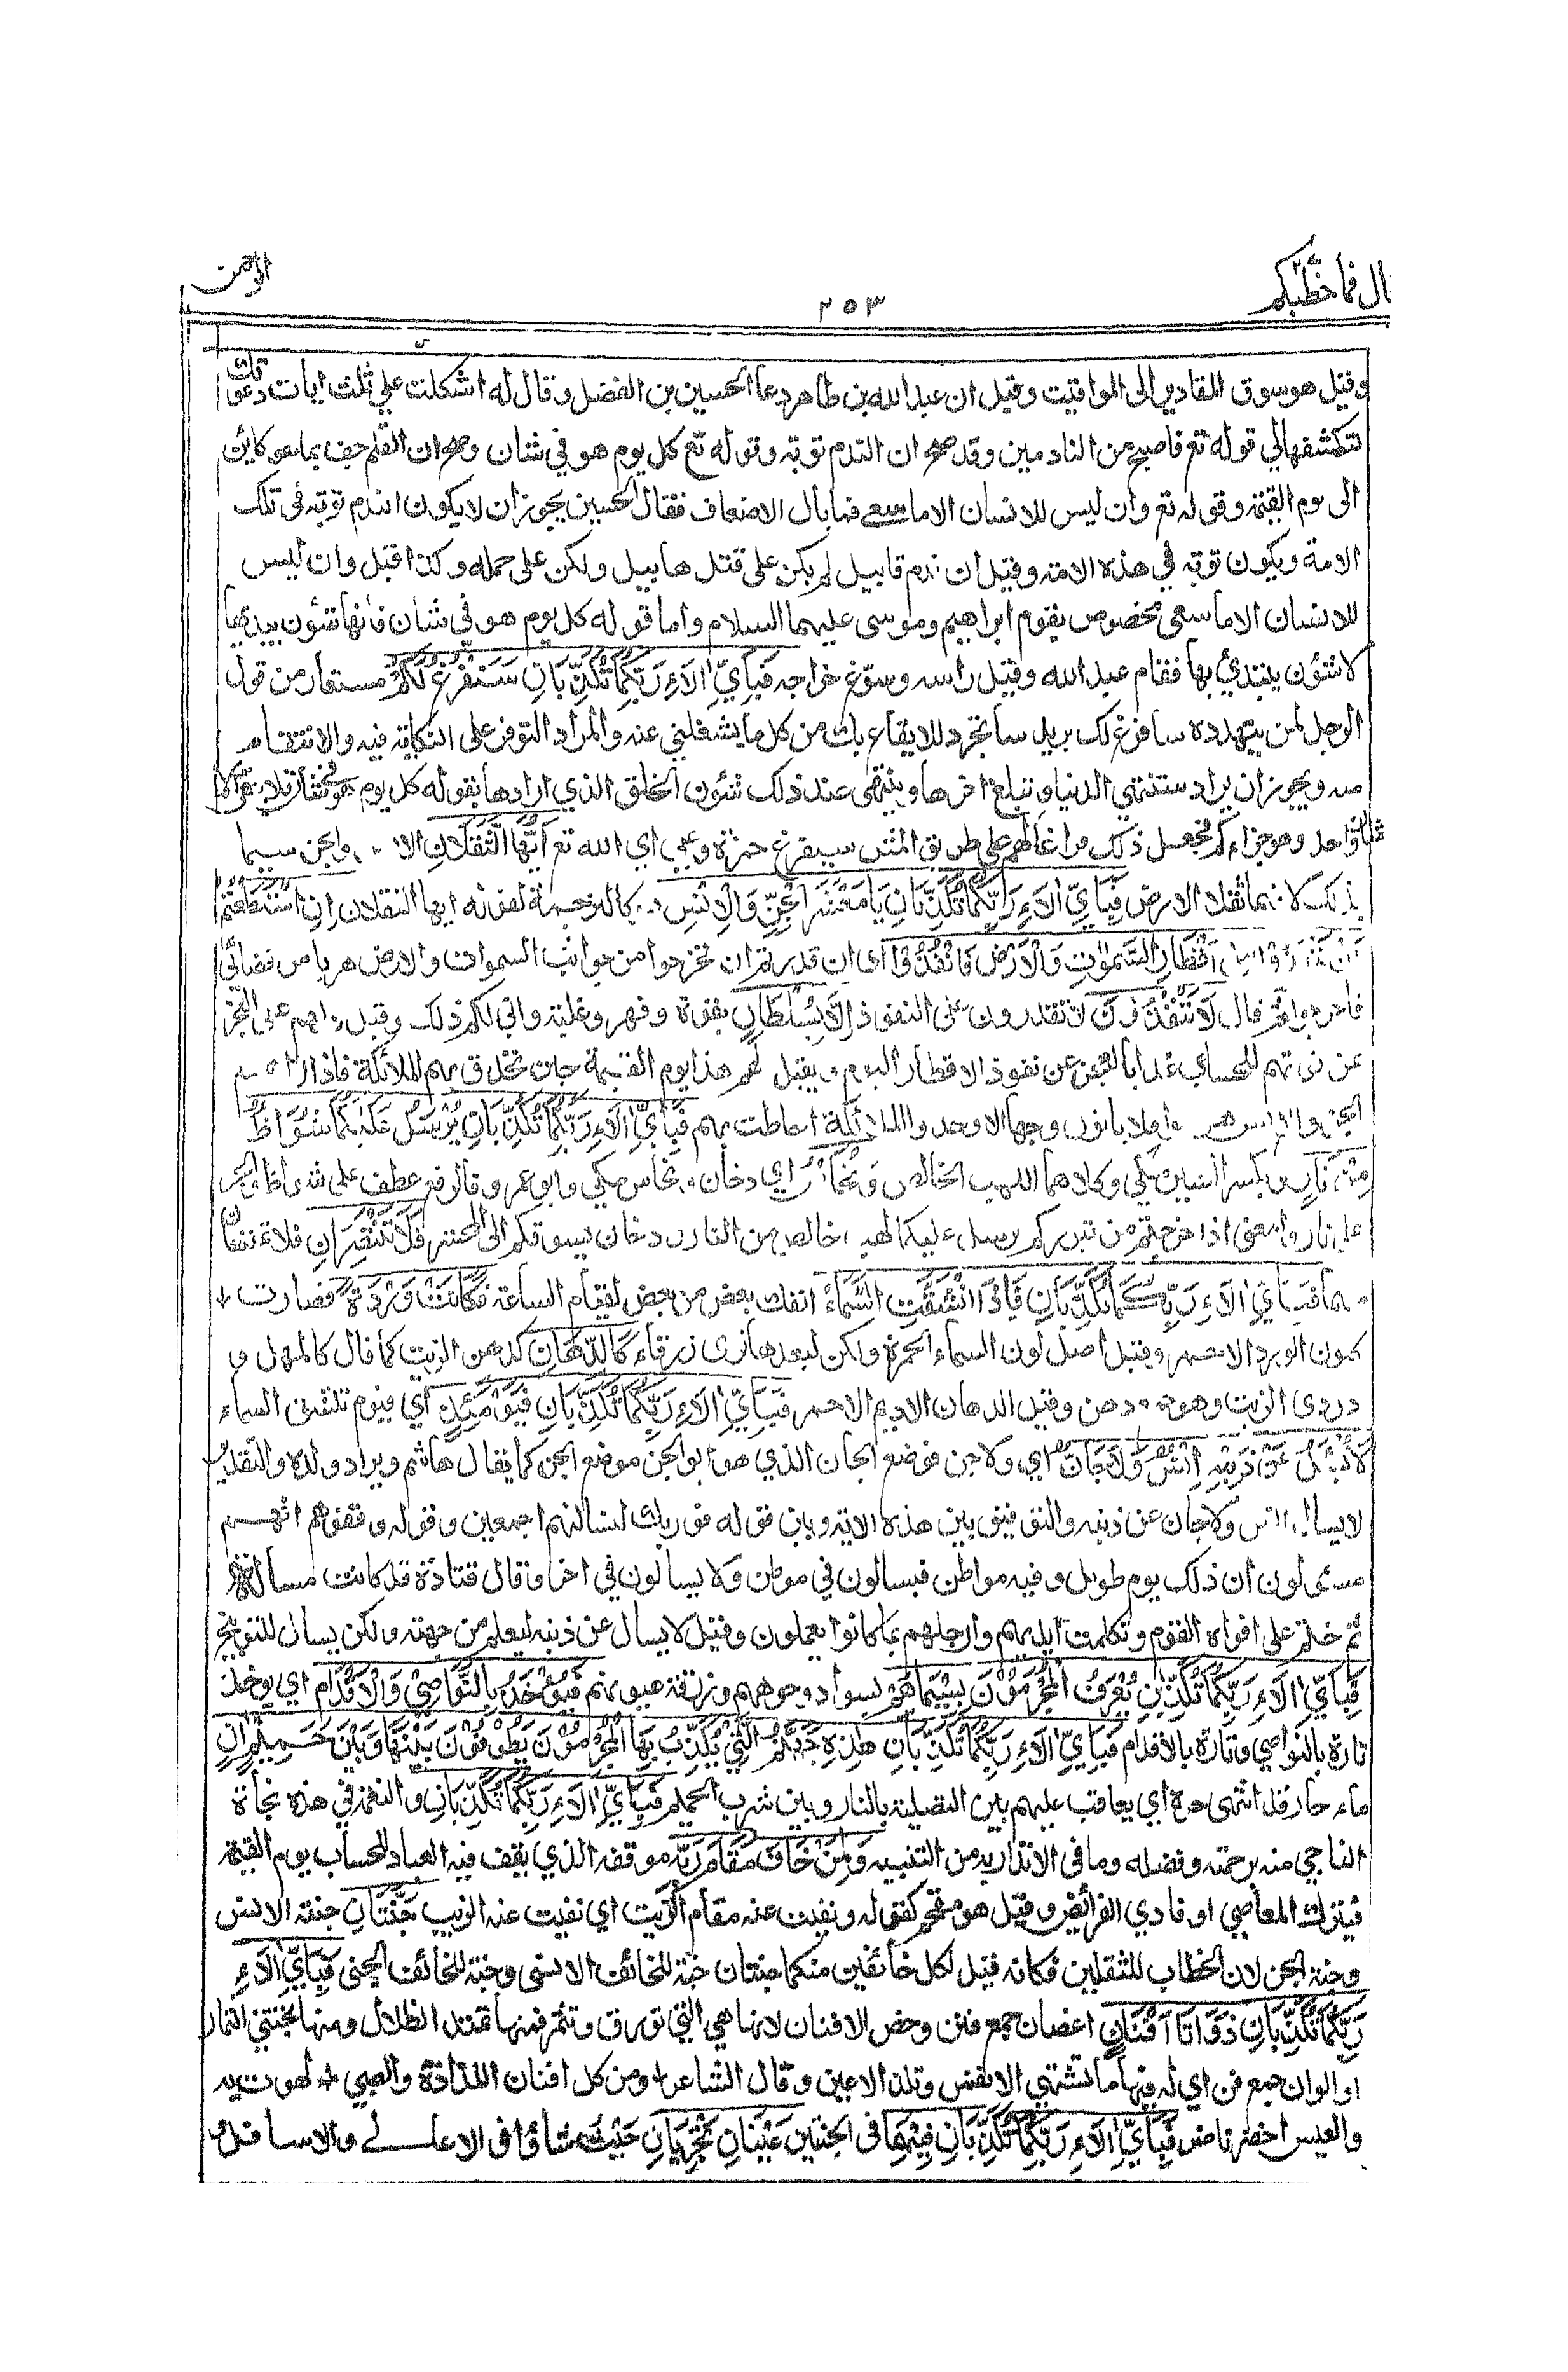 قال فما خطبكم
٢٥٣
الرحمن
وقيل هو سوق المقادير الى المواقيت وقيل ان عبد الله بن طاهر دعا الحسين بن الفضل وقال له اشكلت علي ثلث ايات دعوتك
لتكشفها لي قوله تع فاصبح من النادمين وقد صح ان الندم توبة وقوله تع كل يوم هو في شان وصح ان القلم جف بما هو كائن
الى يوم القيمة وقوله تع وان ليس للانسان الا ما سعى فما بال الاضعاف فقال الحسين يجوز ان لا يكون الندم توبة في تلك
الامة ويكون توبة في هذه الامة وقيل ان ندم قابيل لم يكن على قتل هابيل ولكن على حمله وكذا قيل وان ليس
للانسان الا ما سعى مخصوص بقوم ابراهيم وموسى عليهما السلام واما قوله كل يوم هو في شان فانها شئون يبديها
لا شئون يبتدئ بها فقام عبد الله وقبل راسه وسوغ خراجه فَبِاَيِّ اٰلَاءِ رَبِّكُمَا تُكَذِّبَانِ سَنَفْرُغُ لَكُمْ مستعار من قول
الرجل لمن يتهدده سافرغ لك يريد ساتجرد للايقاع بك من كل ما يشغلني عنه والمراد التوفر على النكاية فيه والانتقام
منه ويجوز ان يراد ستنتهي الدنيا وتبلغ اخرها وينتهى عند ذلك شئون الخلق الذي ارادها بقوله كل يوم هو في شان فلا يبقى الا
شان واحد وهو جزاءكم فجعل ذلك فراغا لهم على طريق المثل سيفرغ حمزة وعلي اي الله تع اَيُّهَا الثَّقَلَانِ الانس والجن سميا
بذلك لانهما ثقلا الارض فَبِاَيِّ اٰلَاءِ رَبِّكُمَا تُكَذِّبَانِ يَا مَعْشَرَ الْجِنِّ وَالْاِنْسِ كالترجمة لقوله ايها الثقلان اِنِ اسْتَطَعْتُمْ
اَنْ تَنْفُذُوْا مِنْ اَقْطَارِ السَّمٰوٰتِ وَالْاَرْضِ فَانْفُذُوْا اى ان قدرتم ان تخرجوا من جوانب السموات والارض هربا من قضائي
فاخرجوا ثم قال لَا تَنْفُذُوْنَ لا تقدرون على النفوذ اِلَّا بِسُلْطَانٍ بقوة وقهر وغلبة واني لكم ذلك وقيل دلهم على العجز
عن قوتهم للحساب غدا بالعجز عن نفوذ الاقطار اليوم ويقال لهم هذا يوم القيمة حين تحدق بهم الملائكة فاذا راهم
الجن والانس هربوا فلا ياتون وجها الا وجدوا الملائكة احاطت بهم فَبِاَيِّ اٰلَاءِ رَبِّكُمَا تُكَذِّبَانِ يُرْسَلُ عَلَيْكُمَا شُوَاظٌ
مِنْ نَارٍ وبكسر الشين مكي وكلاهما اللهب الخالص وَنُحَاسٌ اي دخان ونحاس مكي وابو عمرو فالرفع عطف على شواظ والجر
على نار والمعنى اذا خرجتم من قبوركم يرسل عليكما لهب خالص من النار ودخان يسوقكم الى المحشر فَلَا تَنْتَصِرَانِ فلا تمتنعان
منهما فَبِاَيِّ اٰلَاءِ رَبِّكُمَا تُكَذِّبَانِ فَاِذَا انْشَقَّتِ السَّمَاءُ انفك بعض من بعض لقيام الساعة فَكَانَتْ وَرْدَةً فصارت
كلون الورد الاحمر وقيل اصل لون السماء الحمرة ولكن لبعدها ترى زرقاء كَالدِّهَانِ كدهن الزيت كما قال كالمهل وهو
دردى الزيت وهو جمع دهن وقيل الدهان الاديم الاحمر فَبِاَيِّ اٰلَاءِ رَبِّكُمَا تُكَذِّبَانِ فَيَوْمَئِذٍ اي فيوم تنشق السماء
لَا يُسْئَلُ عَنْ ذَنْبِهٖ اِنْسٌ وَّلَا جَانٌّ اي ولا جن فوضع الجان الذي هو ابو الجن موضع الجن كما يقال هاشم ويراد ولده والتقدير
لا يسال انس ولا جان عن ذنبه والتوفيق بين هذه الاية وبين قوله فوربك لنسالنهم اجمعين وقوله وقفوهم انهم
مسئولون ان ذلك يوم طويل وفيه مواطن فيسالون في موطن ولا يسالون في اخر وقال قتادة قد كانت مسالة
ثم ختم على افواه القوم وتكلمت ايديهم وارجلهم بما كانوا يعملون وقيل لا يسال عن ذنبه ليعلم من جهته ولكن يسال للتوبيخ
فَبِاَيِّ اٰلَاءِ رَبِّكُمَا تُكَذِّبٰنِ يُعْرَفُ الْمُجْرِمُوْنَ بِسِيْمَاهُمْ بسواد وجوههم وزرقة عيونهم فَيُؤْخَذُ بِالنَّوَاصِيْ وَالْاَقْدَامِ اي يوخذ
تارة بالنواصي وتارة بالاقدام فَبِاَيِّ اٰلَاءِ رَبِّكُمَا تُكَذِّبَانِ هٰذِهِ جَهَنَّمُ الَّتِيْ يُكَذِّبُ بِهَا الْمُجْرِمُوْنَ يَطُوْفُوْنَ بَيْنَهَا وَبَيْنَ حَمِيْمٍ اٰنٍ
ماء حار قد انتهى حره اي يعاقب عليهم بين التصلية بالنار وبين شرب الحميم فَبِاَيِّ اٰلَاءِ رَبِّكُمَا تُكَذِّبَانِ والنعمة في هذه نجاة
الناجي منه برحمته وفضله وما في الانذار به من التنبيه وَلِمَنْ خَافَ مَقَامَ رَبِّهٖ موقفه الذي يقف فيه العباد للحساب يوم القيمة
فيترك المعاصي او فادي الفرائض وقيل هو مقحم كقوله ونفيت عنه مقام الذيب اي نفيت عنه الذيب جَنَّتَانِ جنة الانس
وجنة الجن لان الخطاب للثقلين فكانه قيل لكل خائفين منكما جنتان جنة للخائف الانسى وجنة للخائف الجنى فَبِاَيِّ اٰلَاءِ
رَبِّكُمَا تُكَذِّبَانِ ذَوَاتَا اَفْنَانٍ اغصان جمع فنن وخص الافنان لانها هي التي تورق وتثمر فمنها تمتد الظلال ومنها تجتني الثمار
او الوان جمع فن اي له فيها ما تشتهي الانفس وتلذ الاعين وقال الشاعر ومن كل افنان اللذاذة والصبي لهوت به
والعيش اخضر ناضر فَبِاَيِّ اٰلَاءِ رَبِّكُمَا تُكَذِّبَانِ فِيْهِمَا فى الجنتين عَيْنَانِ تَجْرِيَانِ حيث شاؤا فى الاعالي والاسافل